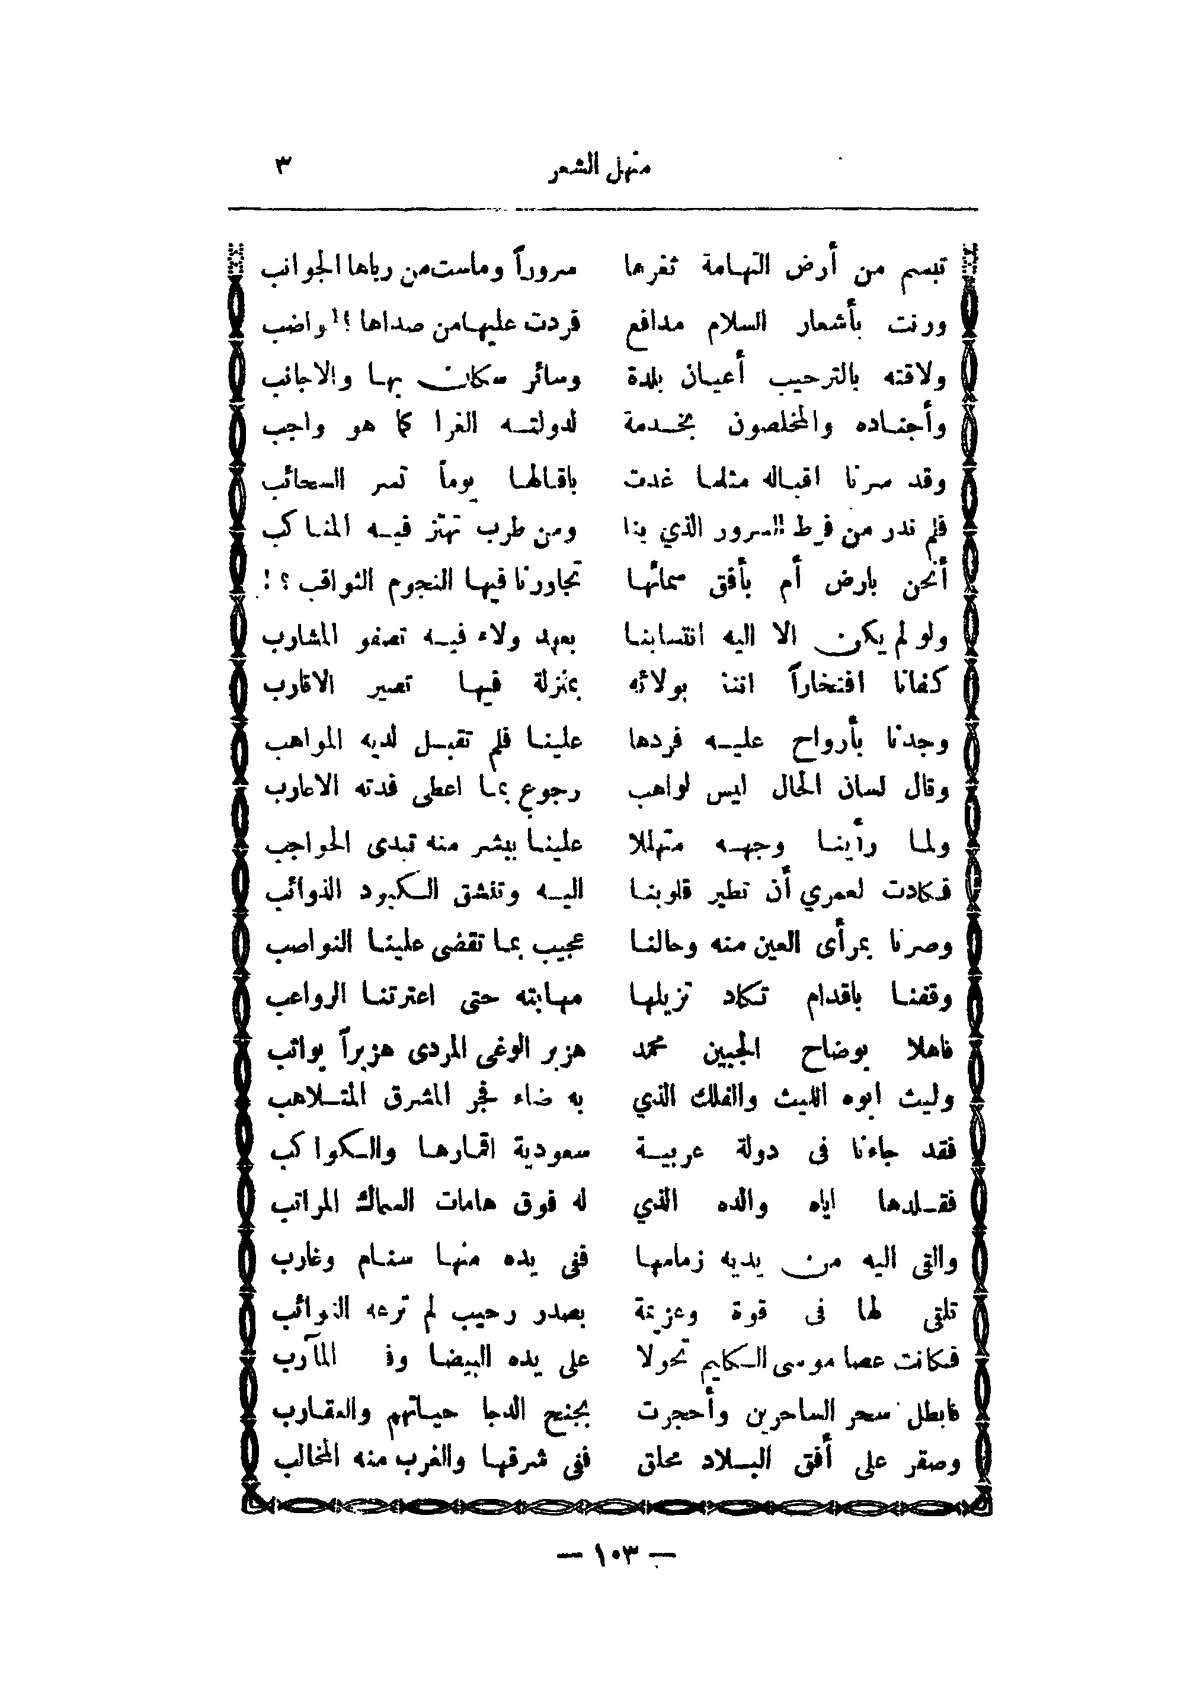 منهل الشعر ٣
تبسم من أرض التهامة ثغرها سروراً وماست من رباها الجوانب
ورنت بأشعار السلام مدافع فردت عليها من صداها
ولاقته بالترحيب أعيان بلدة وسائر سكان بها والاجانب
وأجناده والمخلصون بخدمة لدولته الغرا كما هو واجب
وقد سرنا اقباله مثلما غدت باقبالها يوماً تسر السحائب
فلم ندر من فرط السرور الذي بنا ومن طرب تهتز فيه المناكب
أنحن بارض أم بأفق سمائها تجاورنا فيها النجوم الثواقب ؟ !
ولو لم يكن الا اليه انتسابنا بعهد ولاء فيه تصفو المشارب
كفانا افتخاراً اننا بولائه بمنزلة فيها تصير الاقارب
وجدنا بأرواح عليه فردها علينا فلم تقبل لديه المواهب
وقال لسان الحال ليس لواهب رجوع بما اعطى فدته الاعارب
ولما رأينا وجهه متهللا علينا ببشر منه تبدى الحواجب
فكادت لعمري أن تطير قلوبنا اليه وتنشق الكبود الذوائب
وصرنا بمرأى العين منه وحالنا عجيب بما تقضى علينا النواصب
وقفنا باقدام تكاد تزيلها مهابته حتى اعترتنا الرواعب
فاهلا بوضاح الجبين محمد هزبر الوغى المردى هزبراً يواثب
وليث ابوه الليث والفلك الذي به ضاء فجر المشرق المتلاهب
فقد جاءنا فى دولة عربية سعودية اقمارها والكواكب
فقلدها اياه والده الذي له فوق هامات السماك المراتب
والقى اليه من يديه زمامها ففى يده منها سنام وغارب
تلقى لها فى قوة وعزيمة بصدر رحيب لم ترعه النوائب
فكانت عصا موسى الكليم تحولا على يده البيضا المآرب
فابطل سحر الساحرين وأحجرت بجنح الدجا حياتهم والعقارب
وصقر على أفق البلاد محلق ففى شرقها والغرب منه المخالب
— ١٠٣ —